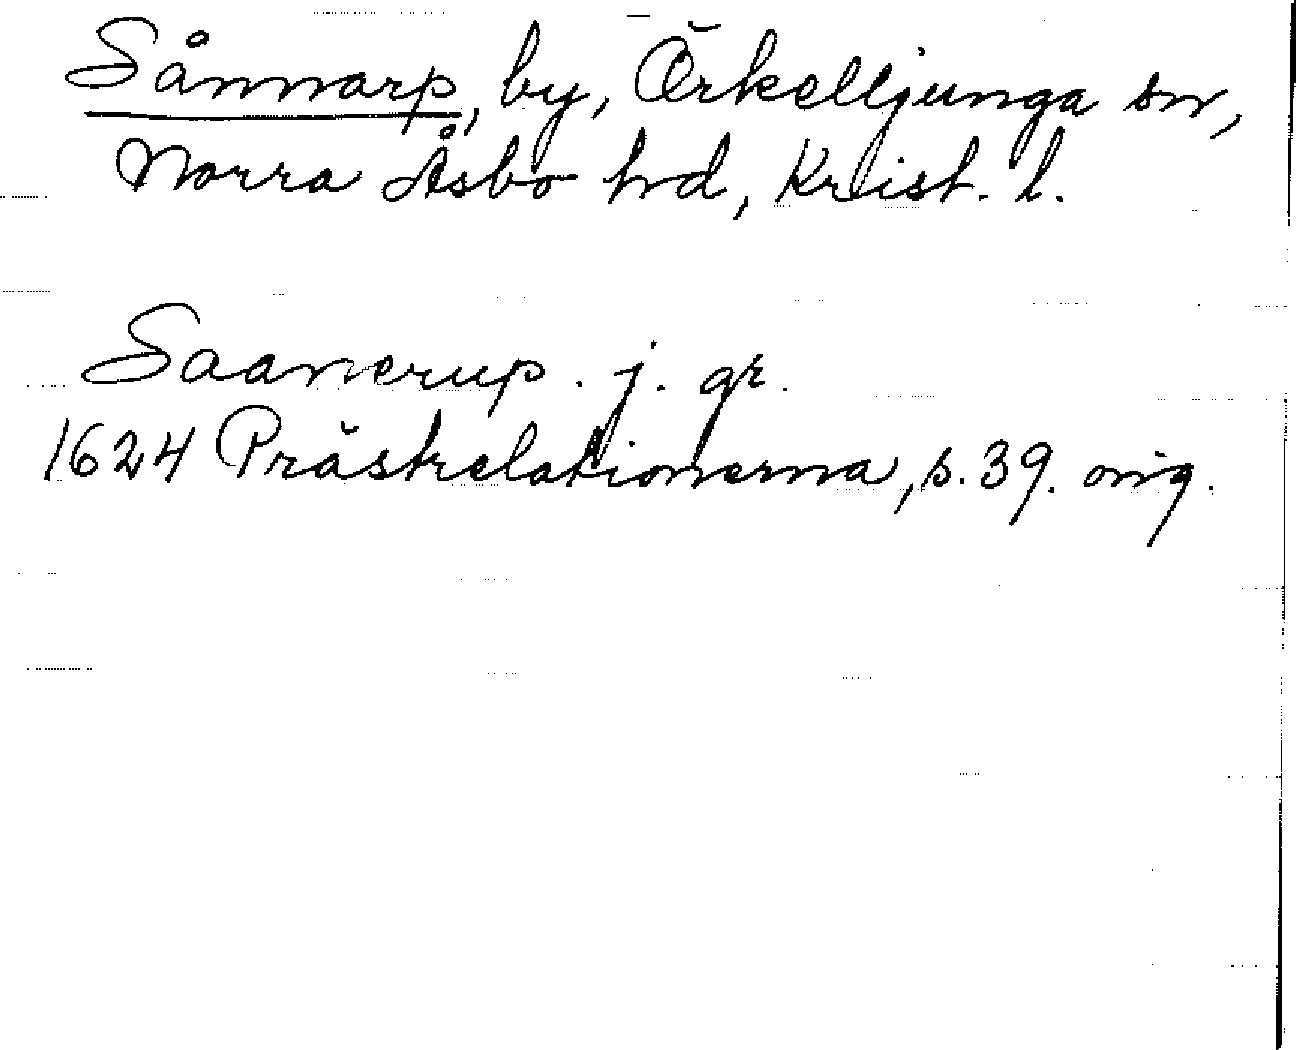 Sånnarp, by, Örkelljunga sn,
Norra Åsbo hd, Krist. l.
Saanerup. j. gr.
1624 Prästrelationerna, s. 39. orig.